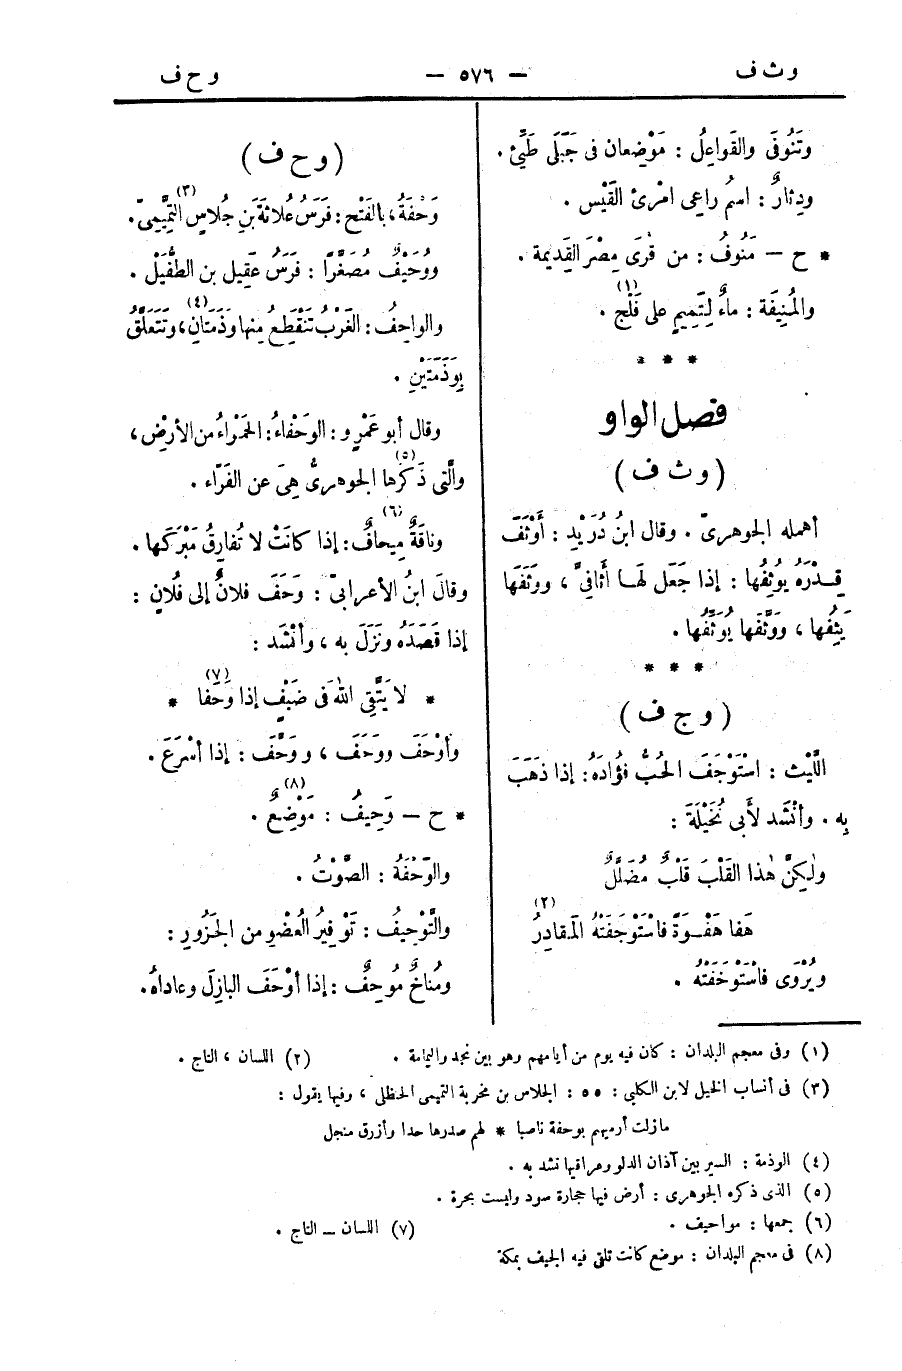 وث ف — ٥٧٦ — وح ف
وتَنُوفَى والقَواعِلُ : مَوْضِعان فى جَبَلَى طَيِّئ .
ودِثارٌ : اسمُ راعِى امْرِئ القَيْس .
* ح — مَنُوفُ : من قُرَى مِصْرَ القَدِيمة .
والمُنِيفَة : ماءٌ لِتَمِيمٍ على فَلْجٍ (١) .
* * *
فصل الواو
(وث ف)
أهمله الجوهرىّ . وقال ابنُ دُرَيْدٍ : أَوْثَفَ
قِدْرَهُ يُوثِفُها : إذا جَعَل لَهَا أَثافِىَّ ، ووَثَفَها
يَثِفُها ، ووَثَّفَها يُوَثِّفُها .
* * *
(وج ف)
اللَّيْث : اسْتَوْجَفَ الحُبُّ فُؤادَهُ : إذا ذَهَبَ
بِه . وأنْشَد لأَبِى نُخَيْلَةَ :
ولٰكِنَّ هٰذا القَلْبَ قَلْبٌ مُضَلَّلٌ
هَفا هَفْوَةً فاسْتَوْجَفَتْهُ المَقادِرُ (٢)
ويُرْوَى فاسْتَوْخَفَتْهُ .
(وح ف)
وَحْفَةُ ، بالفَتْح : فَرَسُ عُلاثَةَ بنِ جُلاسٍ (٣) التَّمِيمِىّ .
ووُحَيْفٌ مُصَغَّرًا : فَرَسُ عَقِيل بن الطُّفَيْل .
والواحِفُ : الغَرْبُ تَنْقَطِعُ مِنها وَذَمَتانِ (٤) ، وتَتَعَلَّقُ
بِوَذَمَتَيْنِ .
وقال أبو عَمْرٍو : الوَحْفاءُ : الحَمْراءُ من الأرْضِ ،
والَّتى ذَكَرَها (٥) الجوهرىُّ هِىَ عن الفَرّاء .
وناقَةٌ مِيحافٌ (٦) : إذا كانَتْ لا تُفارِقُ مَبْرَكَها .
وقالَ ابنُ الأعرابىّ : وَحَفَ فلانٌ إلى فُلانٍ :
إذا قَصَدَهُ ونَزَلَ به ، وأنْشَد :
* لا يَتَّقِى اللهَ فى ضَيْفٍ إذا وَحَفا (٧) *
وأوْحَفَ ووَحَفَ ، ووَحَّفَ : إذا أسْرَعَ .
* ح — وَحِيفُ (٨) : مَوْضِعٌ .
والوَحْفَةُ : الصَّوْتُ .
والتَّوْحِيفُ : تَوْفِيرُ العُضْوِ من الجَزُورِ :
ومُناخٌ مُوحِفٌ : إذا أوْحَفَ البازِلَ وعاداهُ .
(١) وفى معجم البلدان : كان فيه يوم من أيامهم وهو بين نجد واليمامة . (٢) اللسان ، التاج .
(٣) فى أنساب الخيل لابن الكلبى : ٥٥ : الجلاس بن مخربة التميمى الحنظلى ، وفيها يقول :
مازلت أرميهم بوحفة ناصبا * لهم صدرها حدا وأزرق منجل
(٤) الوذمة : السير بين آذان الدلو وعراقيها تشد به .
(٥) الذى ذكره الجوهرى : أرض فيها حجارة سود وليست بحرة .
(٦) جمعها : مواحيف . (٧) اللسان — التاج .
(٨) فى معجم البلدان : موضع كانت تلقى فيه الجيف بمكة